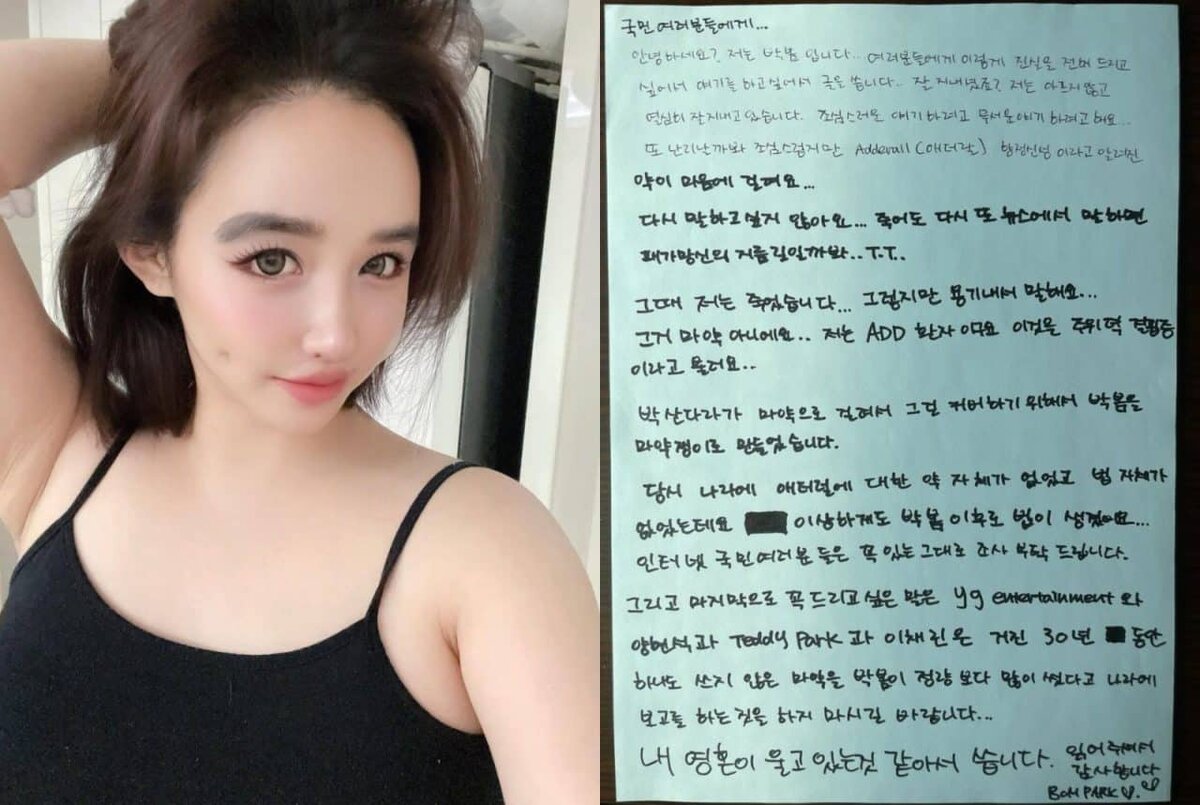 국민 여러분들에게...
안녕하세요? 저는 박봄 입니다... 여러분들에게 이렇게 진실을 전해 드리고
싶어서 얘기를 하고싶어서 글을 씁니다.. 잘 지내셨죠? 저는 아프지않고
열심히 잘지내고 있습니다. 조심스러운 얘기 하려고 무서운얘기 하려고 해요...
또 난리날까봐 조심스럽지만 Adderall (애더랄) 향정신성 이라고 알려진
약이 마음에 걸려요...
다시 말하고싶지 않아요... 죽어도 다시 또 뉴스에서 말하면
패가망신의 지름길일까봐..T.T..
그때 저는 죽었습니다... 그렇지만 용기내서 말해요...
그거 마약 아니에요.. 저는 ADD 환자 이구요 이것을 주위력 결핍증
이라고 불러요..
박산다라가 마약으로 걸려서 그걸 커버하기 위해서 박봄을
마약쟁이로 만들었습니다.
당시 나라에 애더럴에 대한 약 자체가 없었고 법 자체가
없었는데요 이상하게도 박봄 이후로 법이 생겼어요...
인터넷 국민여러분 들은 꼭 있는그대로 조사 부탁 드립니다.
그리고 마지막으로 꼭 드리고 싶은 말은 yg entertainment 와
양현석과 Teddy Park 과 이채린은 거진 30년 동안
하나도 쓰지 않은 마약을 박봄이 정량 보다 많이 썼다고 나라에
보고를 하는것을 하지 마시길 바랍니다...
내 영혼이 울고 있는것 같아서 씁니다. 읽어 주셔서
감사합니다
BOM PARK ♡.♡